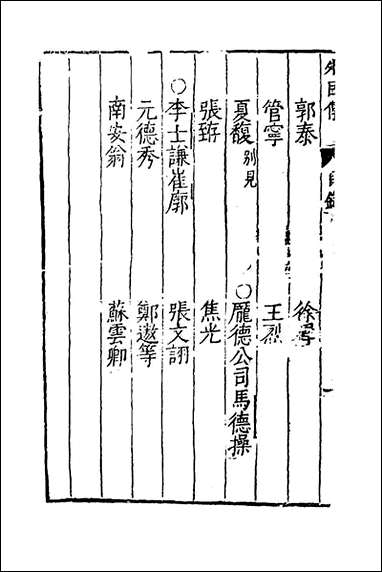 目錄
郭泰 徐
管寧 王烈
夏馥 別見 ○龐德公司馬德操
張臶 焦光
○李士謙崔廓 張文詡
元德秀 鄭遨等
南安翁 蘇雲卿